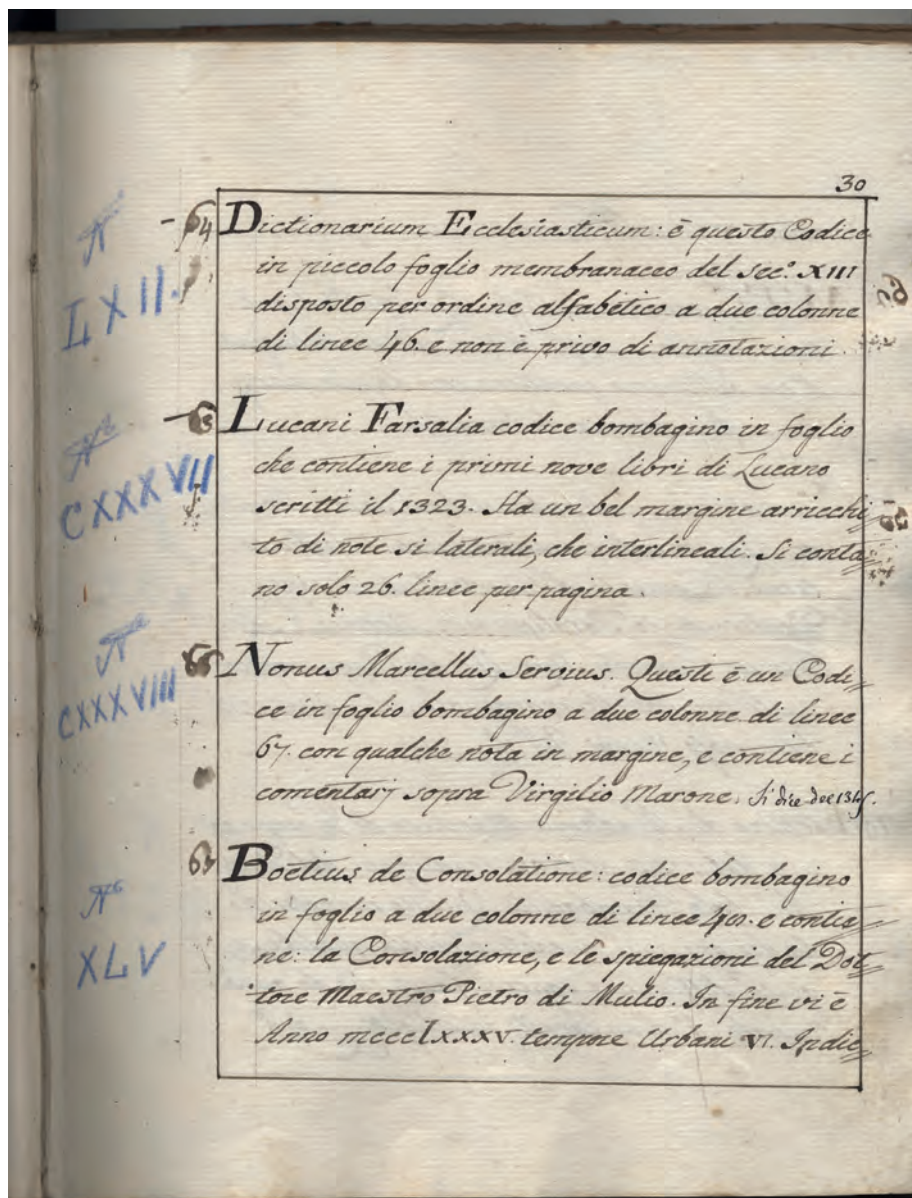 30
64 Dictionarium Ecclesiasticum: è questo Codice
Nº LXII.
in piccolo foglio membranaceo del sec.º XIII
disposto per ordine alfabetico a due colonne
di linee 46. e non è privo di annotazioni.
Lucani Farsalia codice bombagino in foglio
Nº CXXXVII
che contiene i primi nove libri di Lucano
scritti il 1323. Ha un bel margine arricchi
to di note si laterali, che interlineali. Si conta
no solo 26. linee per pagina.
66 Nonus Marcellus Servius. Questi è un Codi
Nº CXXXVIII
ce in foglio bombagino a due colonne di linee
67. con qualche nota in margine, e contiene i
comentarj sopra Virgilio Marone. Si dice del
Boetius de Consolatione: codice bombagino
Nº XLV
in foglio a due colonne di linee e contie
ne: la Consolazione, e le spiegazioni del Dot
tore Maestro Pietro di Mulio. In fine vi è
Anno mccclxxxv. tempore Urbani VI. Indic